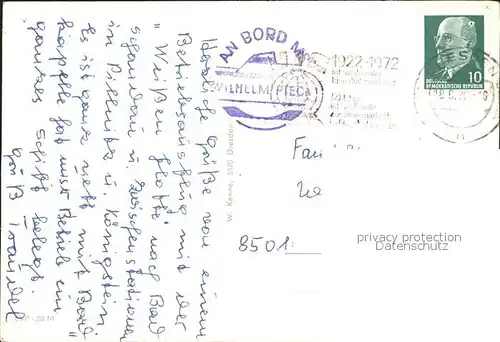 Herzliche Grüße von einem
Betriebsausflug mit der
"Weißen Flotte" nach Bad
Schandau u. Zwischenstationen
in Pillnitz u. Königstein.
Es ist ganz nett mit Bord-
kapelle hat unser Betrieb ein
ganzes Schiff belegt.
Gruß Traudel
W. Kenne, 8020 Dresden
AN BORD M
WILHELM PIECK
1922-1972
10
DEUTSCHE
DEMOKRATISCHE REPUBLIK
Fam
8501
privacy protection
Datenschutz